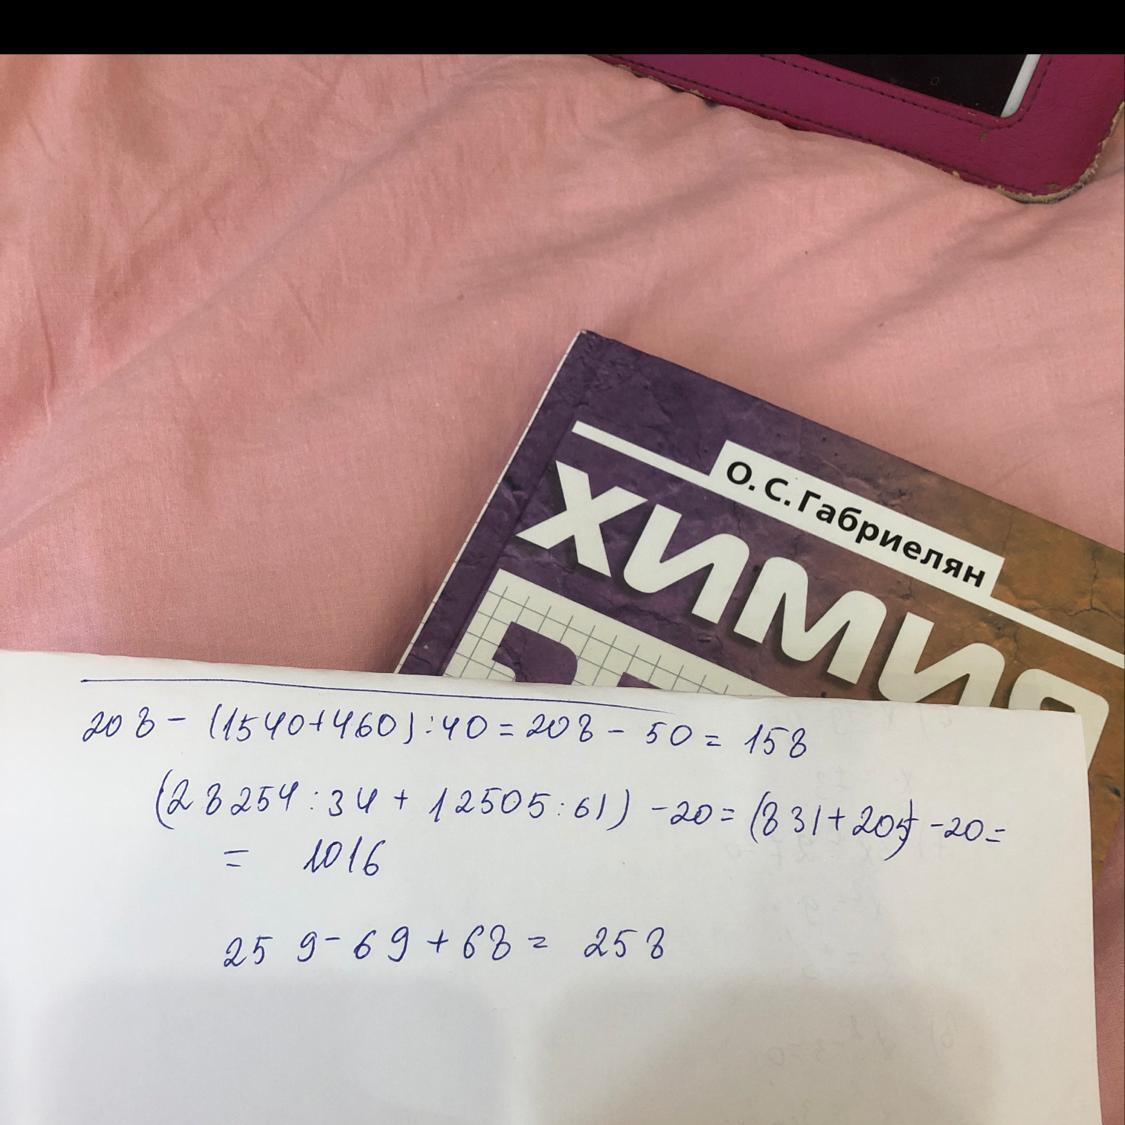 О. С. Габриелян
ХИМИЯ
208 - (1540+460) : 40 = 208 - 50 = 158
(28254 : 34 + 12505 : 61) - 20 = (831 + 205) - 20 =
= 1016
259 - 69 + 68 = 258